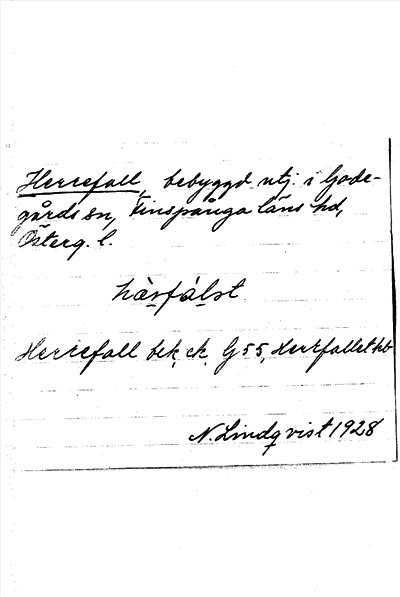 Herrefall, bebyggd utj. i Gode-
gårds sn, Finspånga läns hd,
Österg. l.
hàrfálst
Herrefall bek. ck. G55, Herrfallet hb
N. Lindqvist 1928